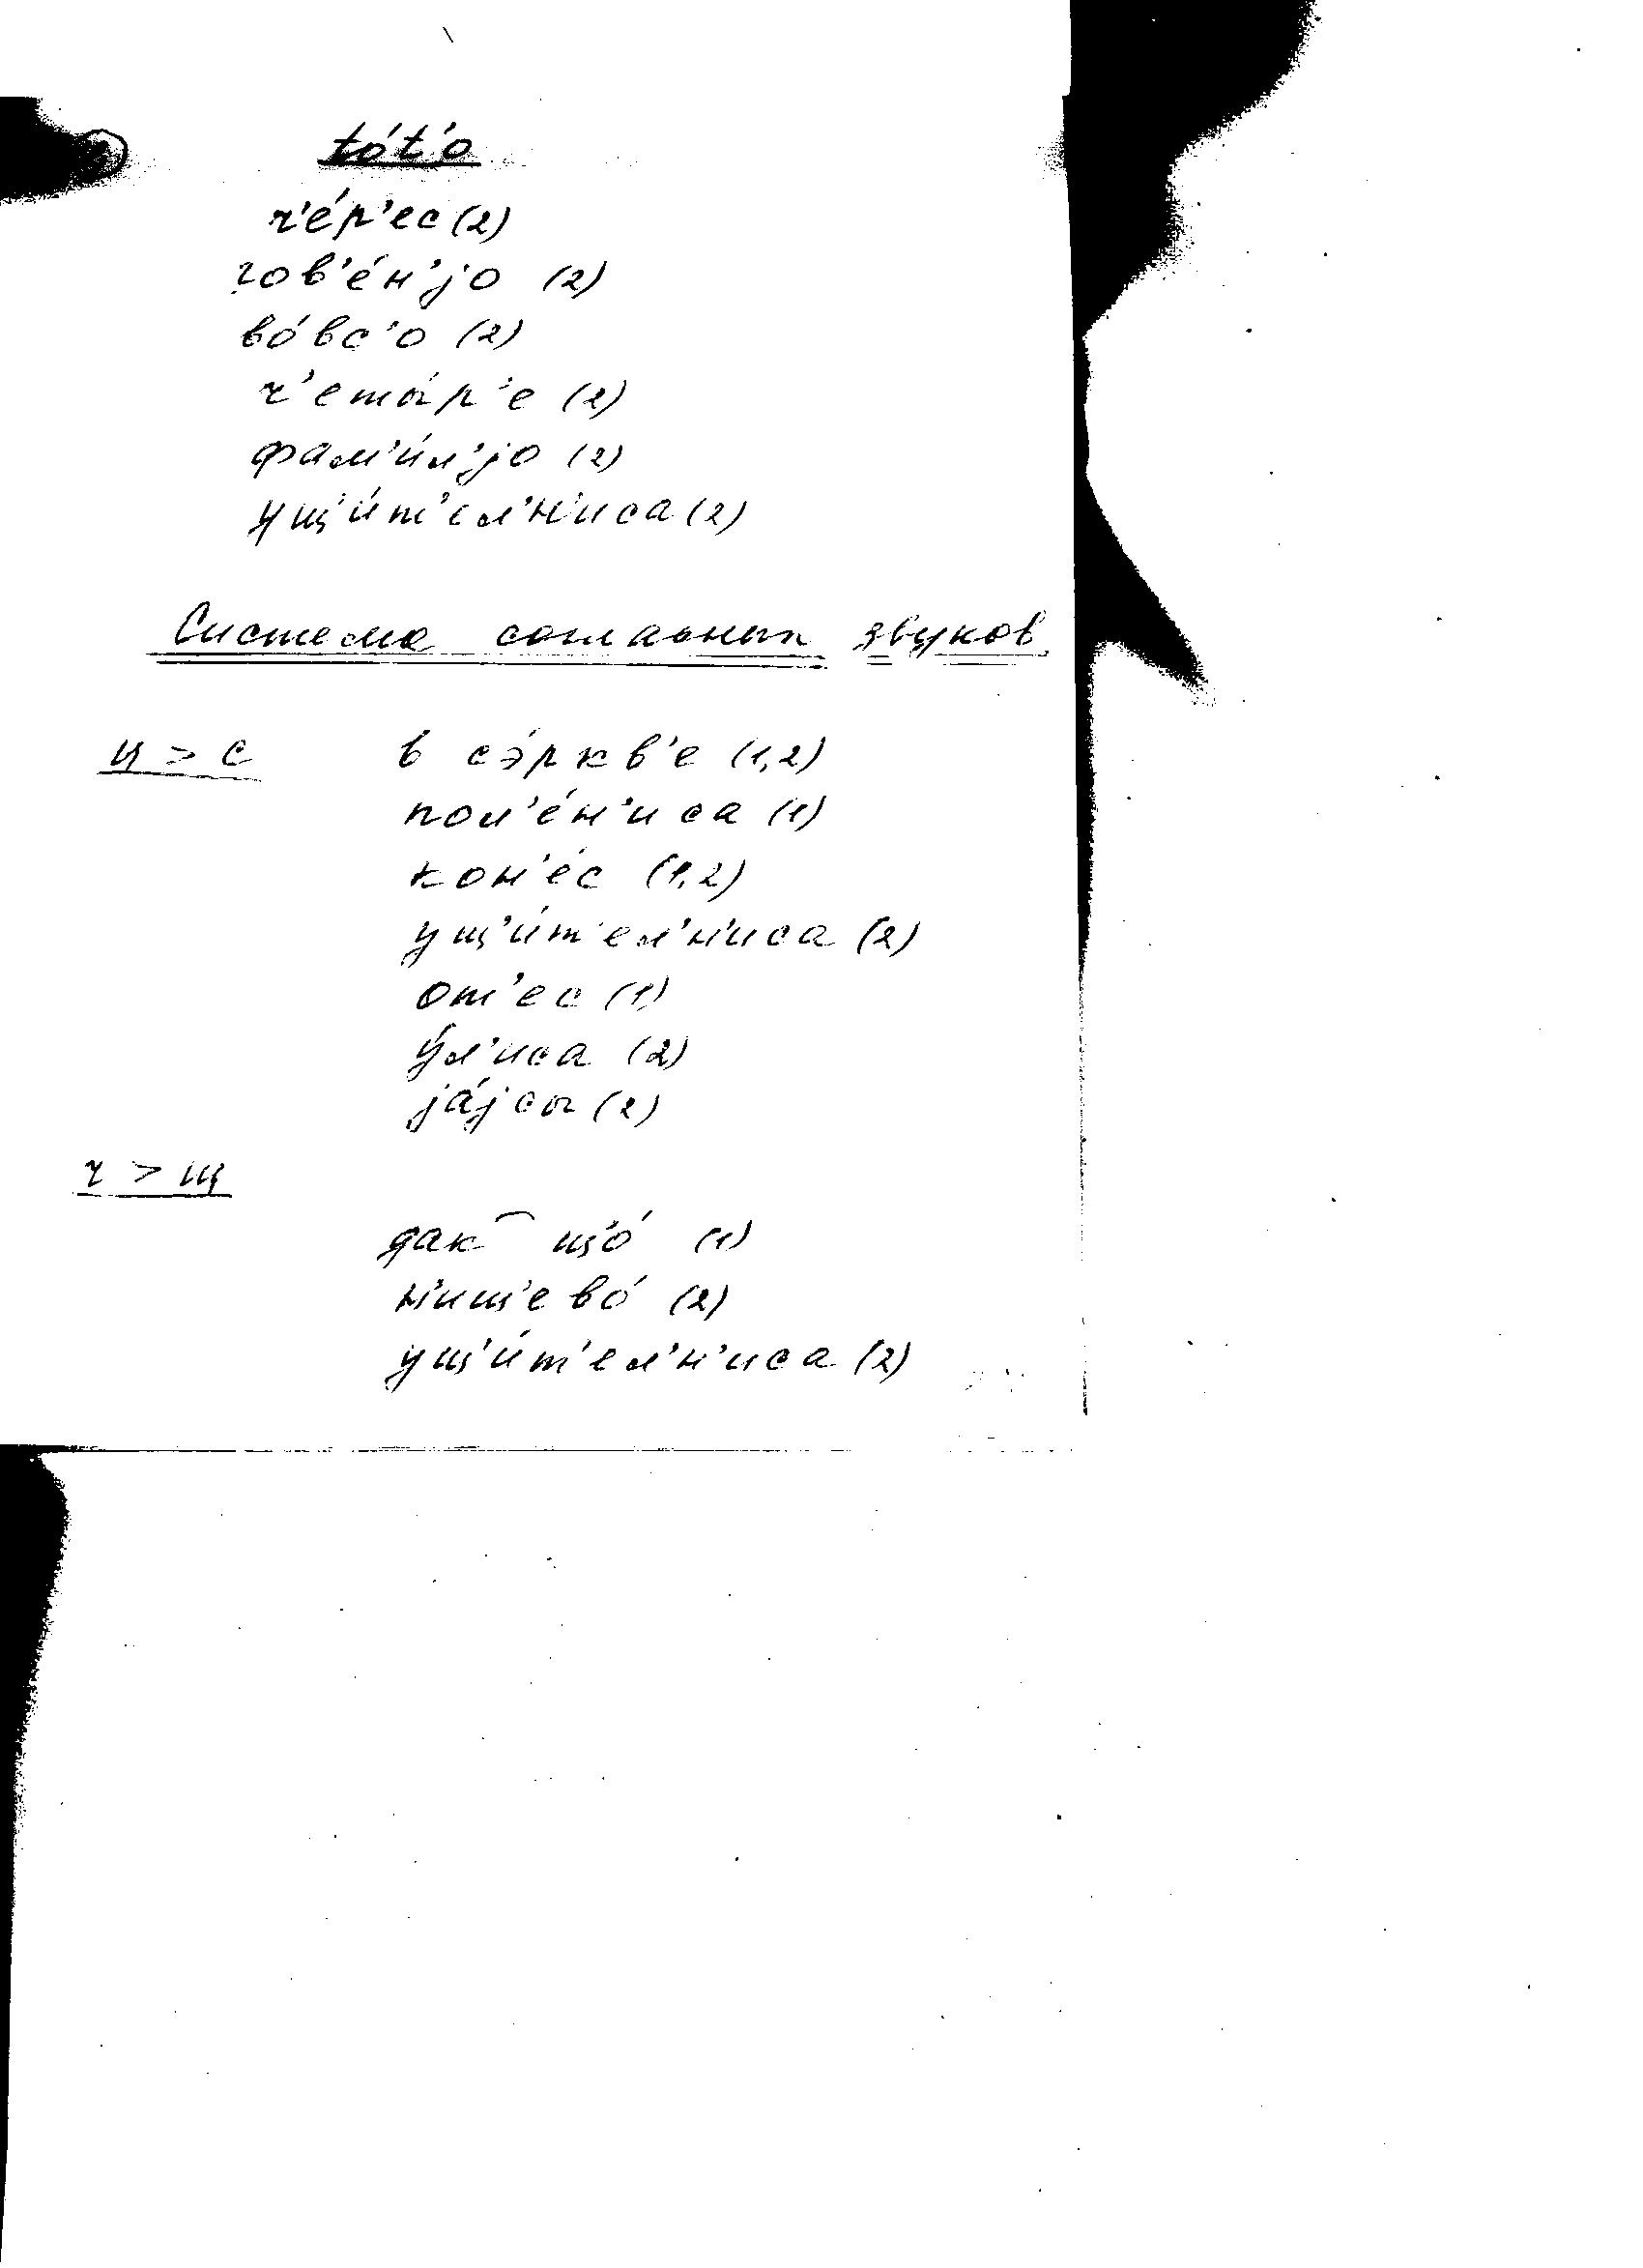 tót'o
ч'éр'ес (2)
гов'éн'jо (2)
вóвс'о (2)
ч'еты́р'е (2)
фам'и́л'jо (2)
ущ'и́т'ел'н'иса (2)
Система согласных звуков
ц > с в сэ́ркв'е (1,2)
пол'éн'иса (1)
кон'éс (1,2)
ущ'и́т'ел'н'иса (2)
от'ес (1)
у́л'иса (2)
jájсы (2)
ч > щ
дак щ'ó (1)
н'ищ'евó (2)
ущ'и́т'ел'н'иса (2)